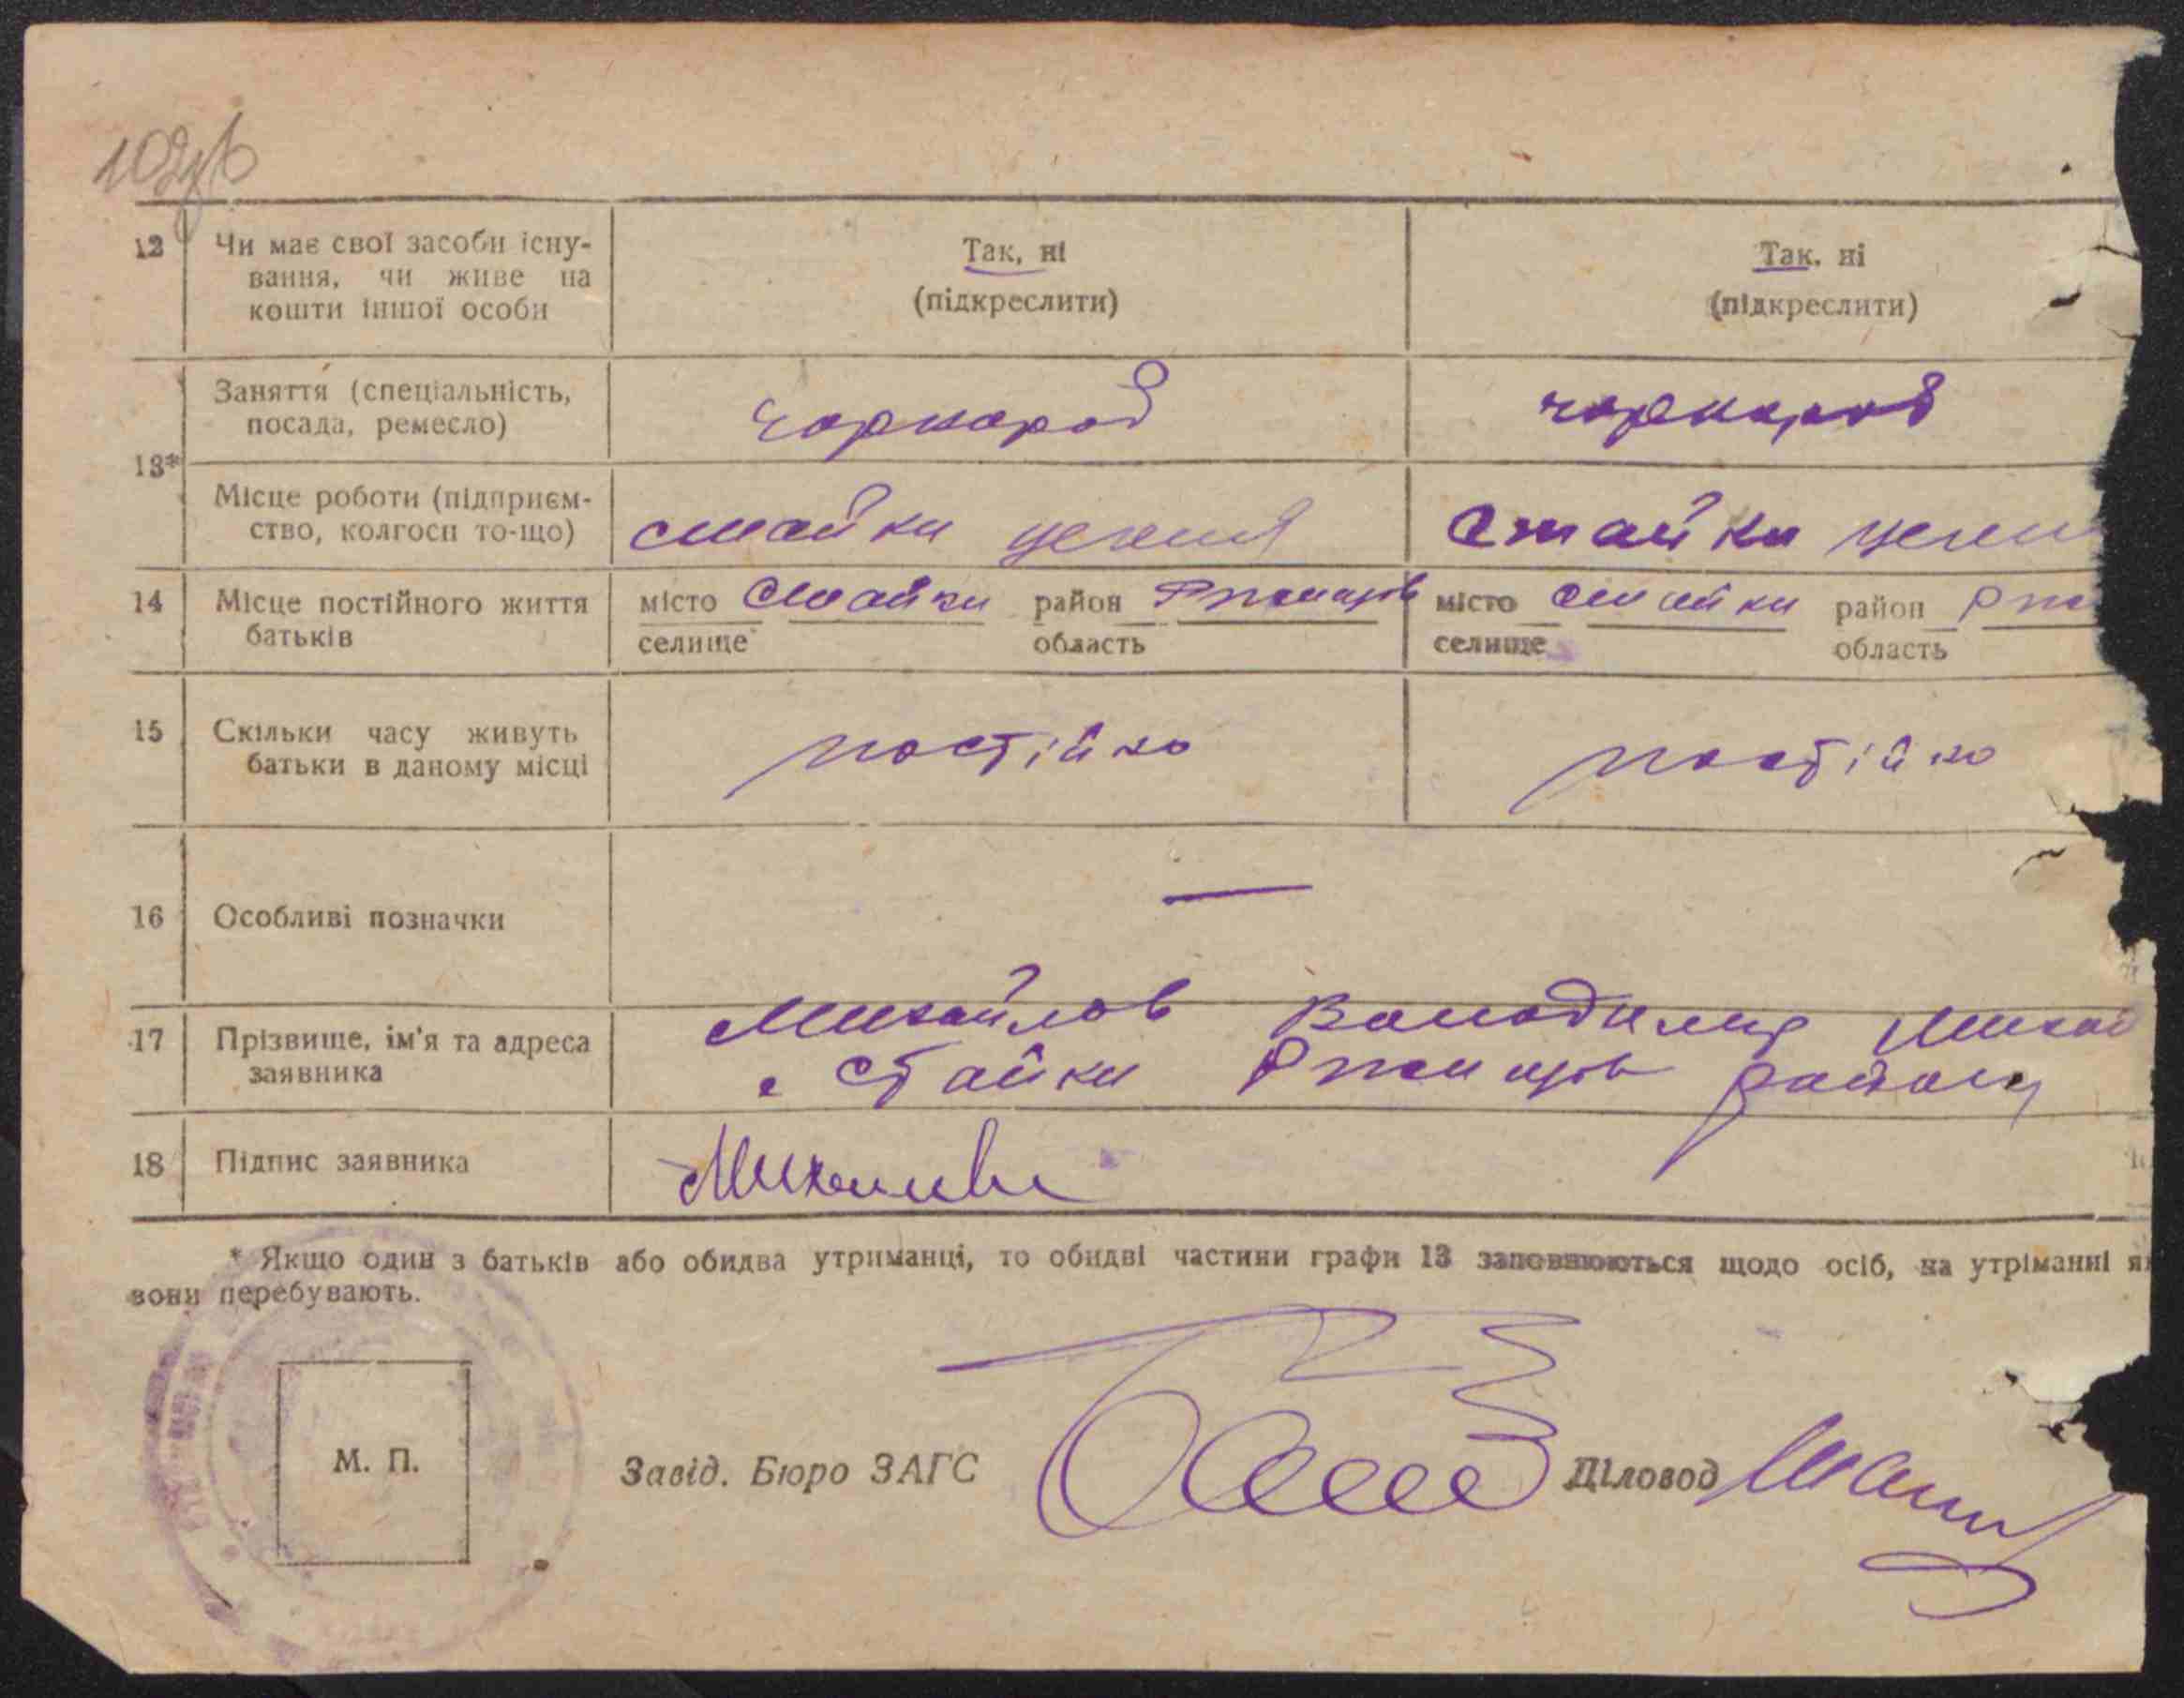 102зв
12 Чи має свої засоби існу- Так, ні Так. ні
вання, чи живе на
кошти іншої особи (підкреслити) (підкреслити)
Заняття (спеціальність, чорнороб чорнороб
посада, ремесло)
13*
Місце роботи (підприєм- Стайки цегельня Стайки
ство, колгосп то-що)
14 Місце постійного життя місто Стайки район Ржищів місто Стайки район Ржи
батьків селище область селище область
15 Скільки часу живуть постійно постійно
батьки в даному місці
16 Особливі позначки —
17 Прізвище, ім'я та адреса Михайлов Володимир Михай
заявника с Стайки Ржищів району
18 Підпис заявника
* Якщо один з батьків або обидва утриманці, то обидві частини графи 13 заповнюються щодо осіб, на утріманні як
вони перебувають.
М. П. Завід. Бюро ЗАГС Діловод